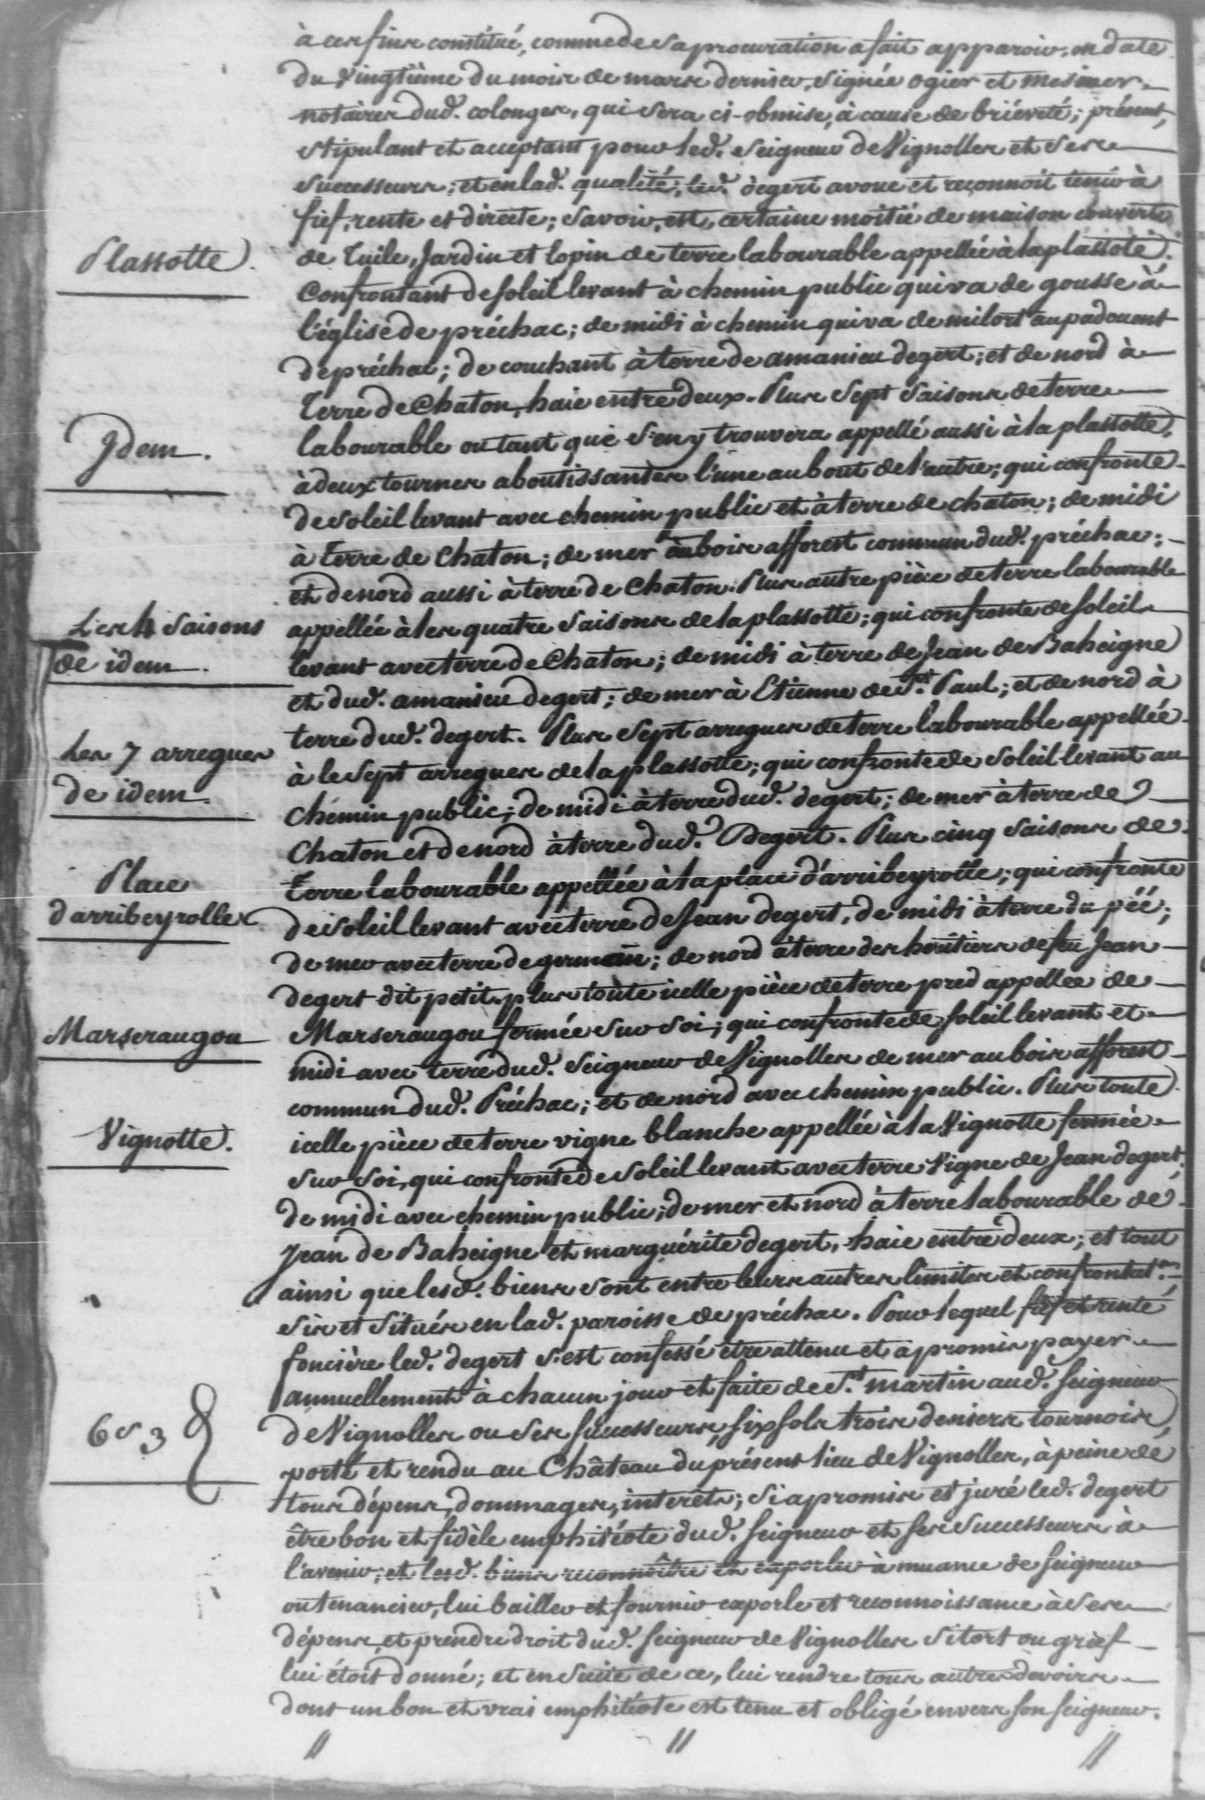 à ces fins constitué, comme de sa procuration a fait apparoir, en date
du vingtième du mois de mars dernier, signée ogier et mesimer
notaires dud. colonges, qui sera ci-obmise, à cause de briéveté; présent,
stipulant et acceptant pour led. Seigneur de Vignolles et ses
successeurs; et en lad. qualité; led. degert avoue et reconnoit tenir à
fief, rente et directe; savoir, est, certaine moitié de maison couverte
Plassotte.
de Tuile, Jardin et lopin de terre labourable appellée à la plassote.
Confrontant de soleil levant à chemin public qui va de gousse à
l'église de préchac; de midi à chemin qui va de milort au padouent
de préchac; de couchant à terre de amanieu degert; et de nord à
Terre de Chaton, haie entre deux. Plus Sept Saisons de terre
Jdem.
labourable ou tant que s'en y trouvera appellé aussi à la plassotte,
à deux tournes aboutissantes l'une au bout de l'autre; qui confronte
de soleil levant avec chemin public et à terre de chaton; de midi
à Terre de Chaton; de mer au bois afforest commun dud. préchac;
et de nord aussi à terre de Chaton. Plus autre pièce de terre labourable
Les 4 Saisons
de idem.
appellée à les quatre Saisons de la plassotte; qui confronte de soleil
levant avec terre de Chaton; de midi à terre de Jean de Baheigne
et dud. amanieu degert; de mer à Etienne de St. Paul; et de nord à
terre dud. degert. Plus Sept arregues de terre labourable appellée
Les 7 arregues
de idem.
à le Sept arregues de la plassotte; qui confronte de soleil levant au
chemin public; de midi à terre dud. degert; de mer à terre de
Chaton et de nord à terre dud. Degert. Plus cinq Saisons de
Place
d'arribeyrolles
Terre labourable appellée à la place d'arribeyrolle; qui confronte
de soleil levant avec terre de Jean degert, de midi à terre du péé;
de mer avec terre de germain; de nord à terre des héritiers de feu Jean
degert dit petit. plus toute icelle pièce de terre pred appellée de
Marseraugou
Marseraugou fermée sur soi; qui confronte de soleil levant et
midi avec terre dud. Seigneur de Vignolles de mer au bois afforest
commun dud. Préchac; et de nord avec chemin public. Plus toute
Vignotte.
icelle pièce de terre vigne blanche appellée à la Vignotte fermée
sur soi, qui confronte de soleil levant avec terre Vigne de Jean degert;
de midi avec chemin public; de mer et nord à terre labourable de
Jean de Baheigne et marguérite degert, haie entre deux; et tout
ainsi que lesd. biens sont entre leurs autres limites et confrontat.ons
sis et situés en lad. paroisse de préchac. Pour lequel fief et rente
foncière led. degert s'est confessé être attenu et a promis payer
annuellement à chacun jour et faite de St. martin aud. Seigneur
6 s 3 d
de Vignolles ou ses successeurs, six sols trois deniers tournois,
porté et rendu au Château du présent lieu de Vignolles, à peine de
tous dépens, dommages, interêts; si a promis et juré led. degert
être bon et fidèle emphitéote dud. Seigneur et ses successeurs à
l'avenir; et lesd. biens reconnoître et exporler à muance de Seigneur
ou tenancier, lui bailler et fournir exporle et reconnoissance à ses
dépens, et prendre droit dud. Seigneur de Vignolles si tort ou grief
lui étoit donné; et en suite de ce, lui rendre tous autres devoirs
dont un bon et vrai emphitéote est tenu et obligé envers son Seigneur.
// // //